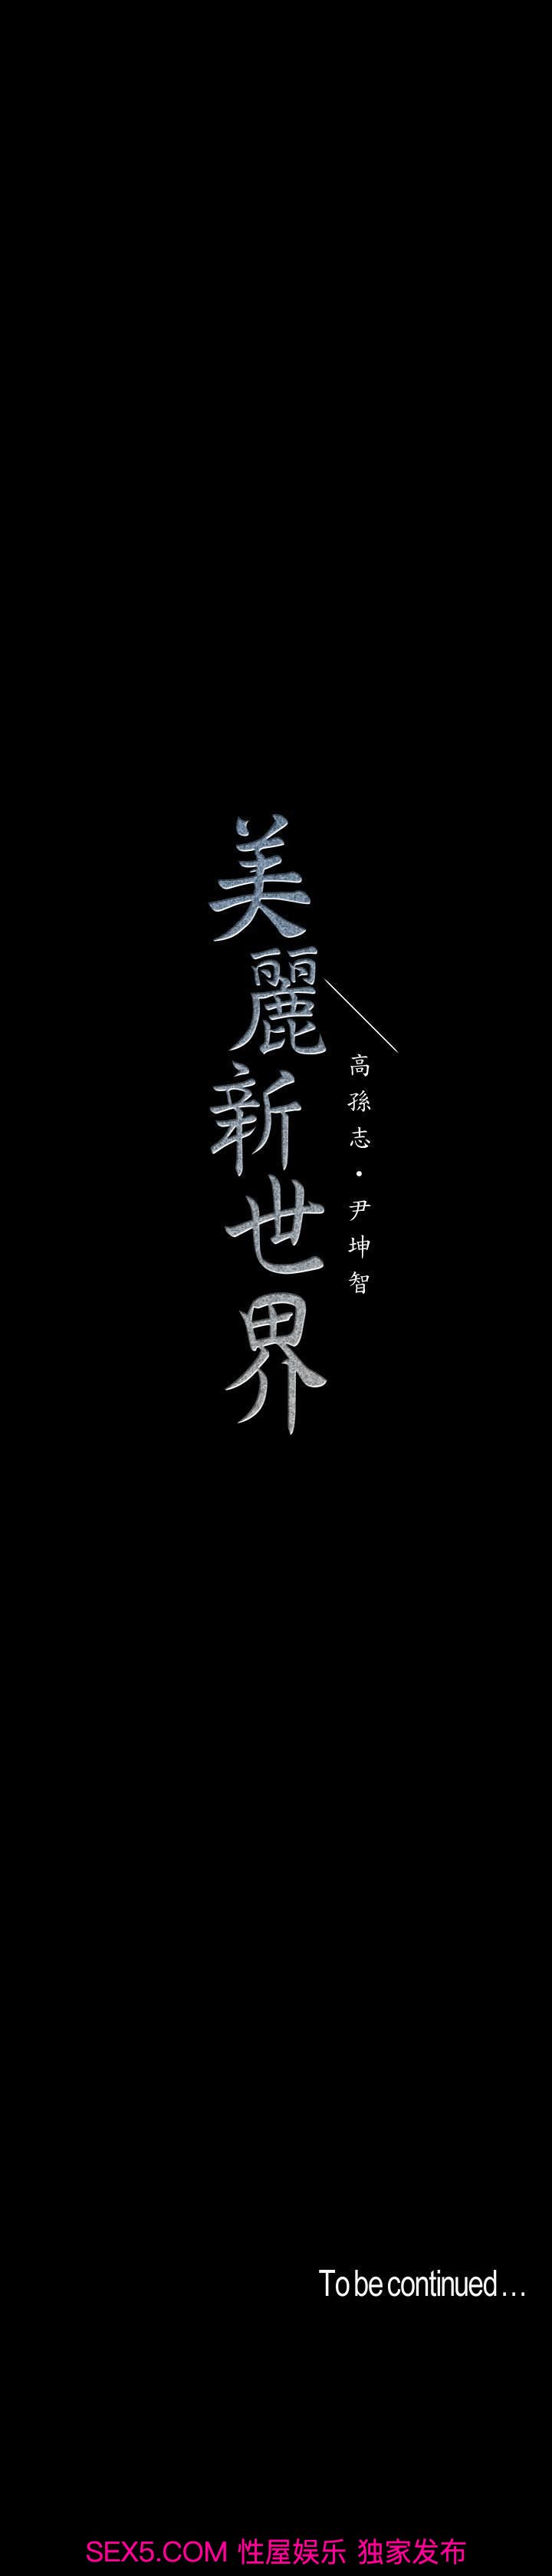 美麗新世界
高孫志·尹坤智
To be continued...
SEX5.COM 性屋娱乐 独家发布